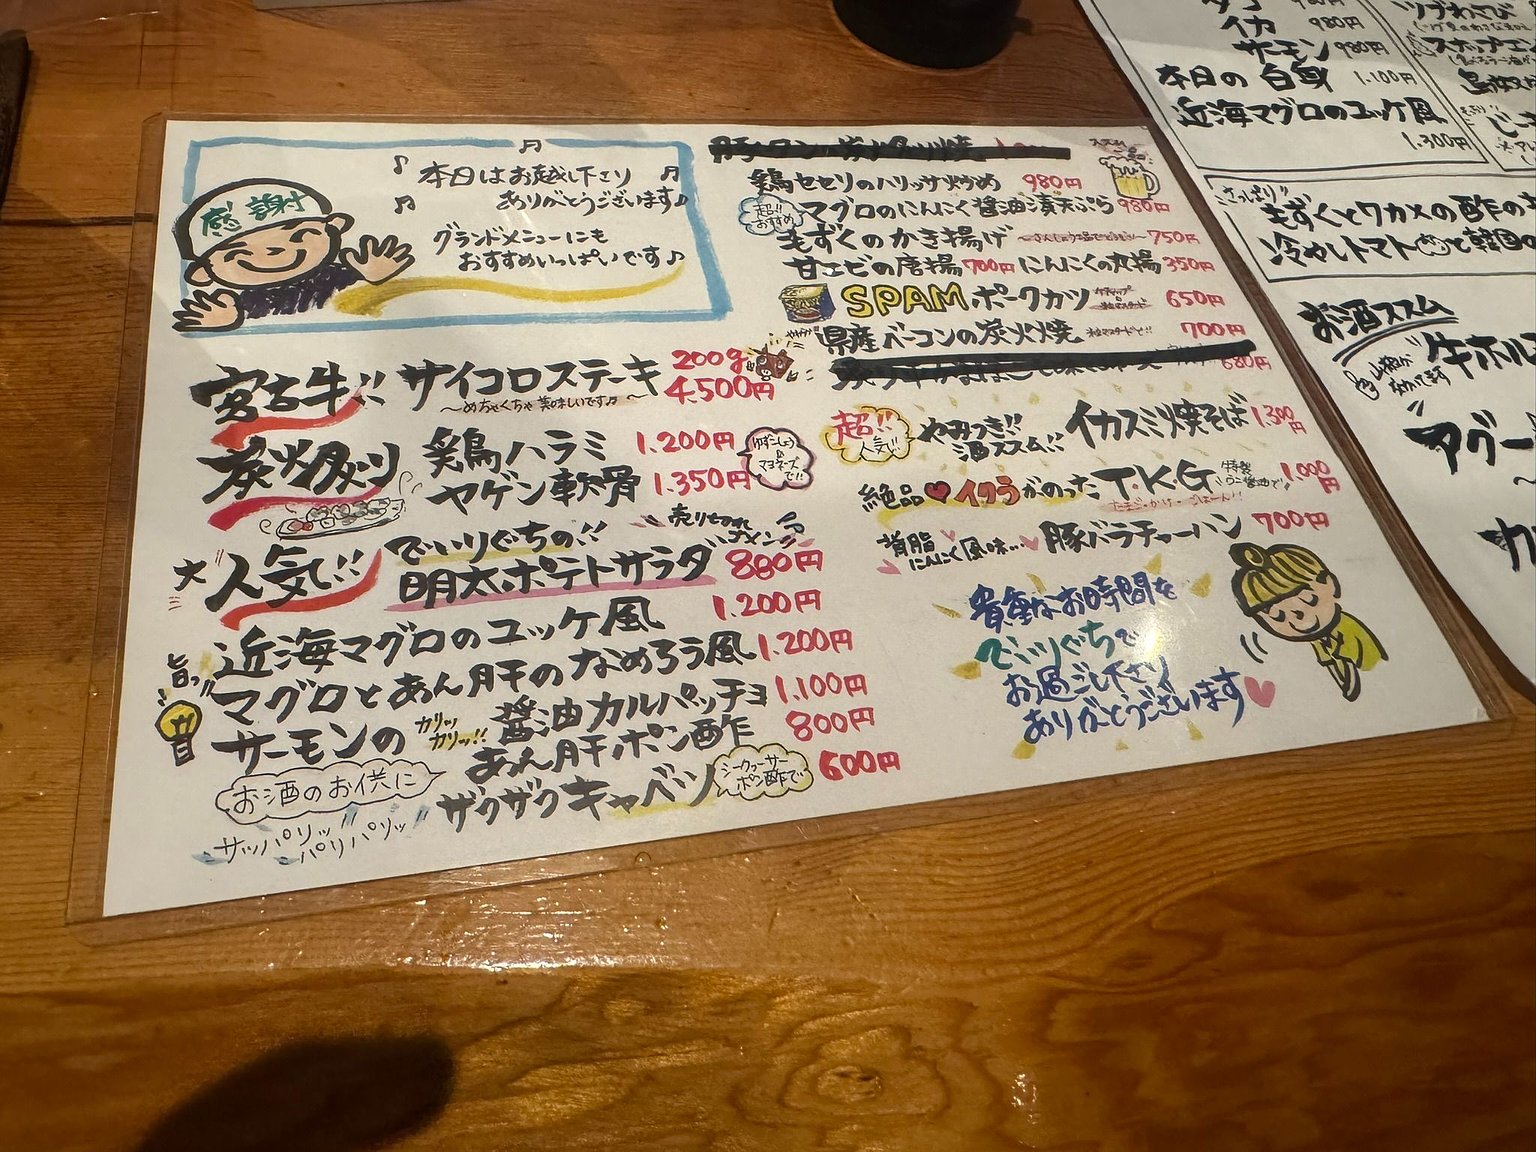 感謝
本日はお越し下さり
ありがとうございます♪
グランドメニューにも
おすすめいっぱいです♪
宮古牛!! サイコロステーキ 200g 4,500円
〜めちゃくちゃ美味しいです♬〜
炭火炙り 鶏ハラミ 1.200円
ヤゲン軟骨 1.350円
ゆずこしょう
マヨネーズで!!
大人気!! でいりぐちの!! 売り切れゴメン!!
明太ポテトサラダ 880円
近海マグロのユッケ風 1.200円
マグロとあん肝のなめろう風 1.200円
旨っ!!
サーモンの カリッカリッ!! 醤油カルパッチョ 1.100円
あん肝ポン酢 800円
お酒のお供に ザクザクキャベツ 600円
シークヮーサーポン酢で
サッパリッ!!
パリパリッ!!
鶏セセリのハリッサ炒め 980円
超!!おすすめ マグロのにんにく醤油漬天ぷら 980円
もずくのかき揚げ 750円
甘エビの唐揚 700円 にんにくの丸揚 350円
SPAMポークカツ 650円
県産ベーコンの炭火焼 700円
680円
超!!人気!! やみつき!!
酒ススム!! イカスミ焼そば 1.300円
絶品♥イクラがのったT.K.G 特製ウニ醤油で!! 1.000円
たまごかけごはーん!!
背脂にんにく風味… 豚バラチャーハン 700円
貴重なお時間を
でいりぐちで
お過ごし下さり
ありがとうございます
イカ 980円
サーモン 980円
本日の白身 1.100円
近海マグロのユッケ風
1.300円
ツブわさび
さっぱり!!
もずくとワカメの酢の
冷やしトマト
お酒ススム
牛ホル
アグー